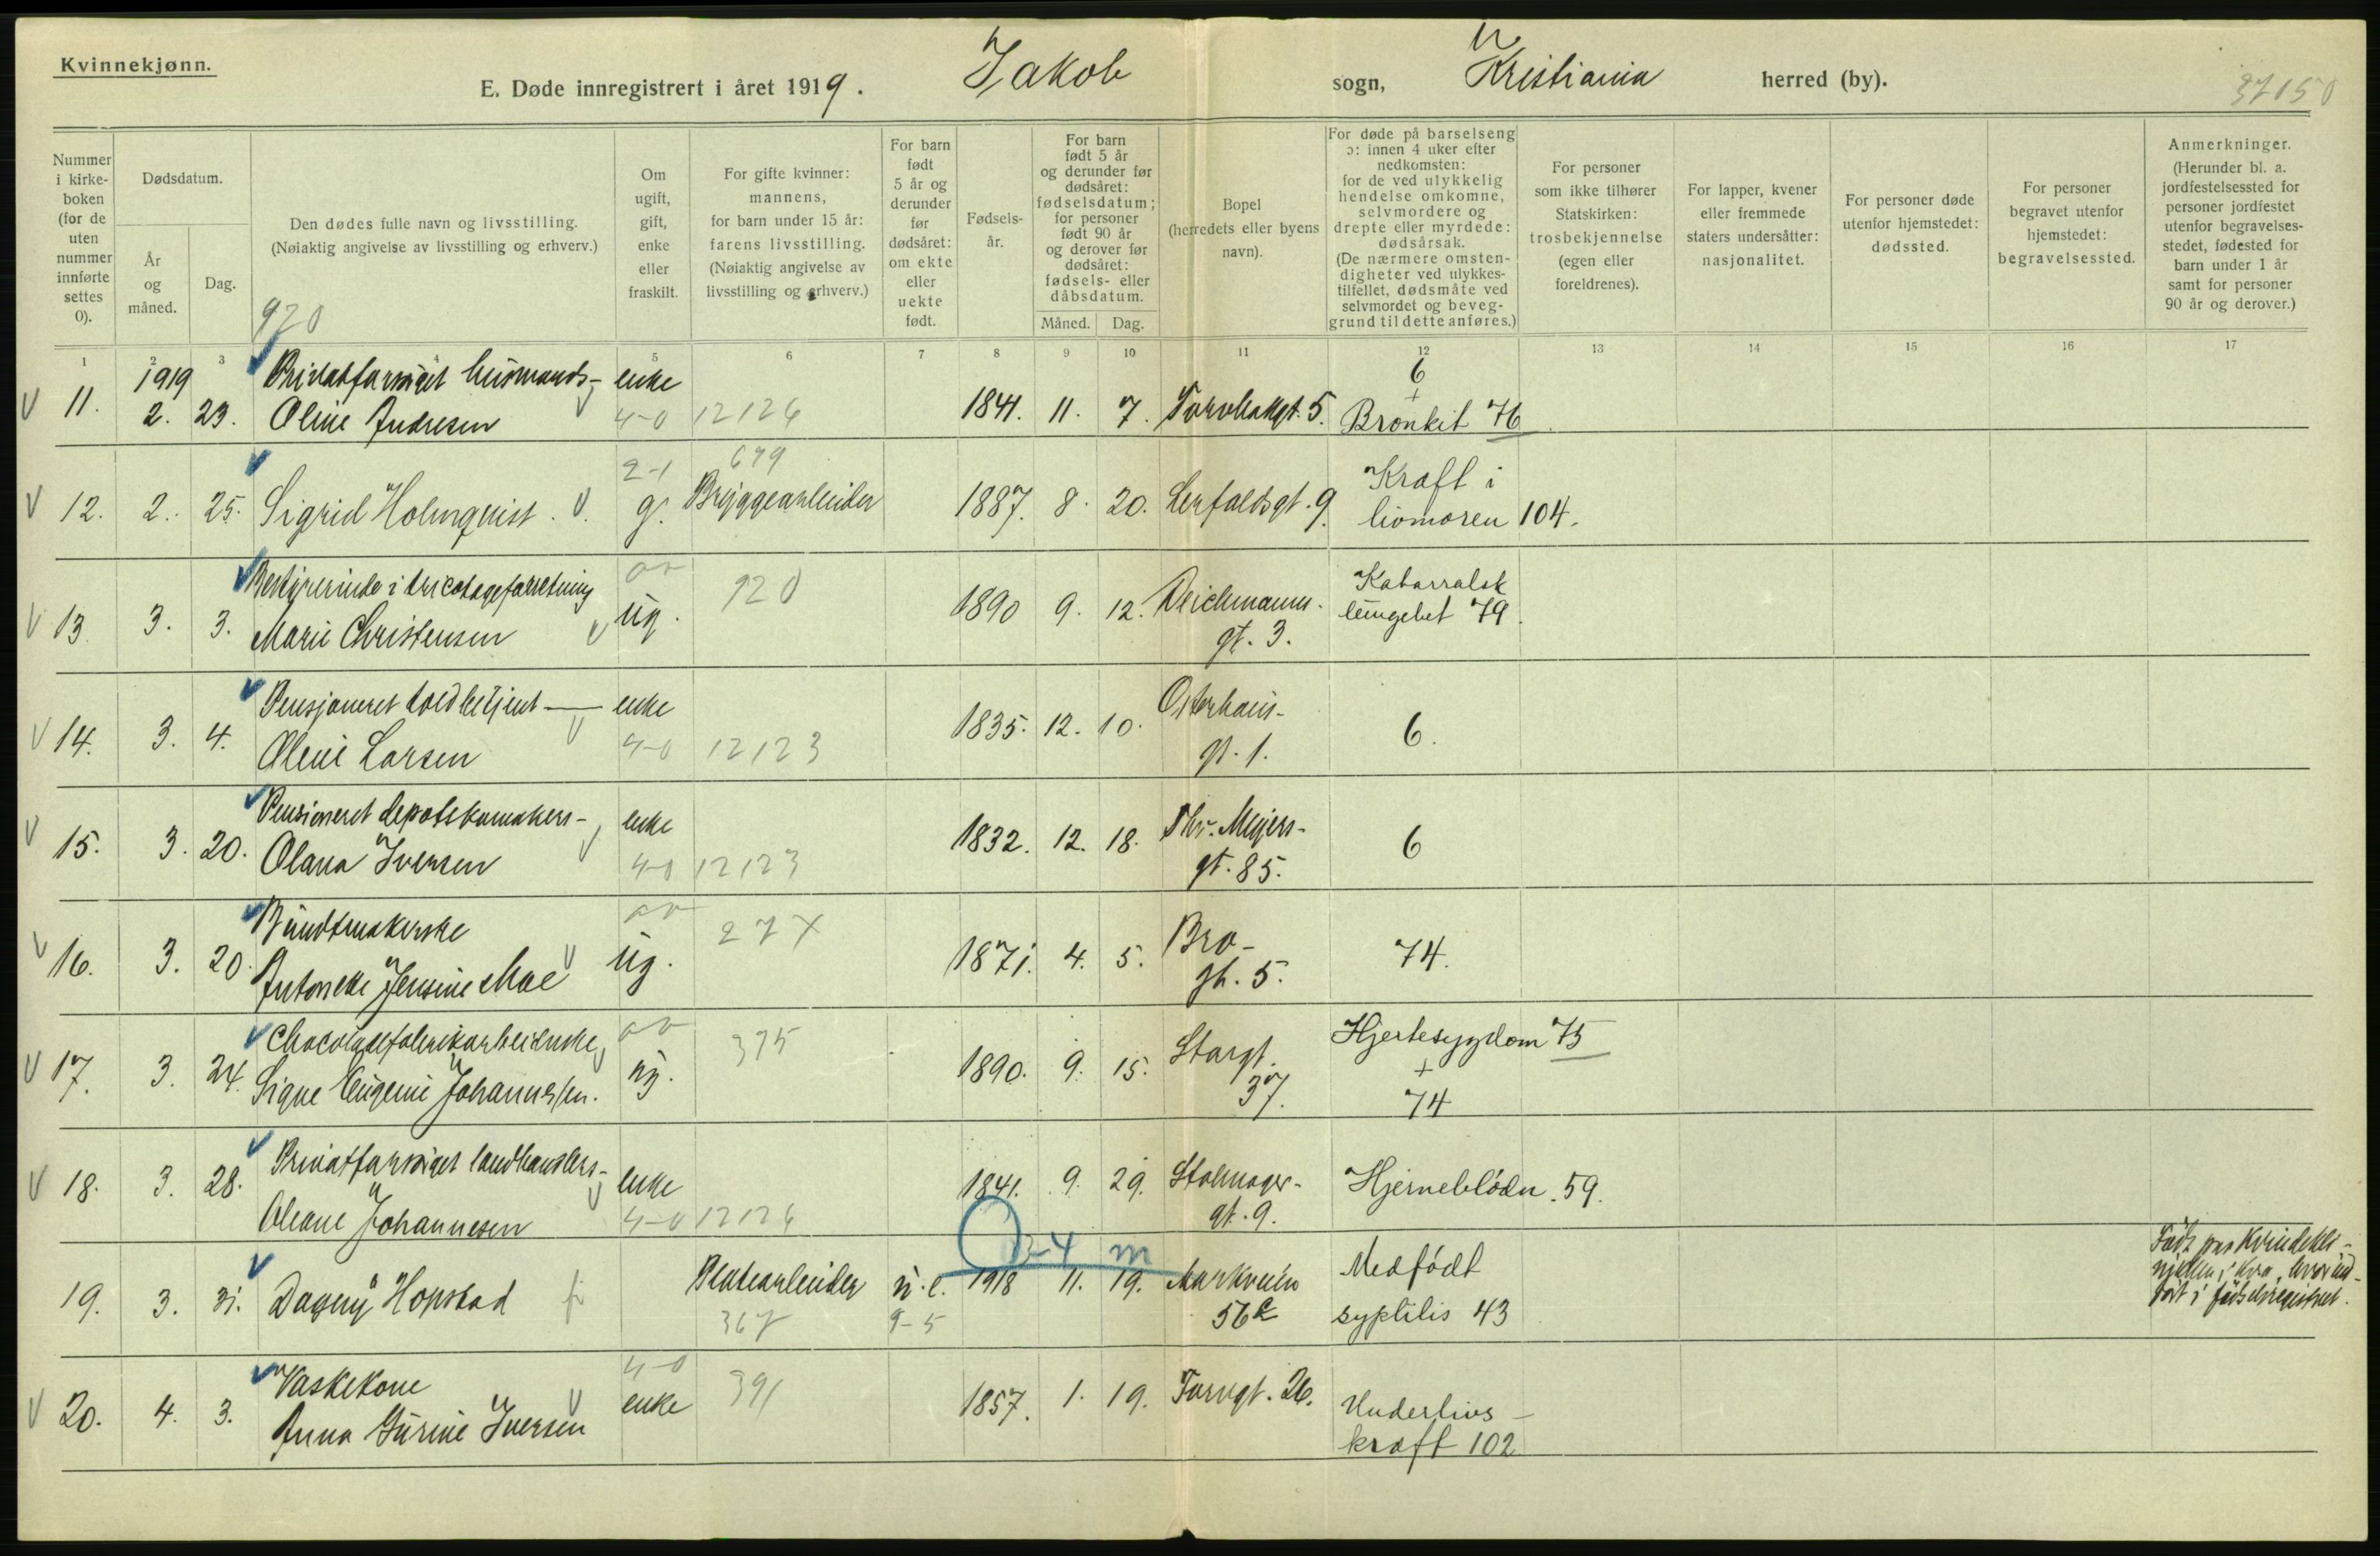 Kvinnekjønn.
E. Døde innregistrert i året 1919. Jakob sogn, Kristiania herred (by).
37150
Nummer i kirke-boken (for de uten nummer innførte settes 0).
Dødsdatum.
År og måned.
Dag.
Den dødes fulle navn og livsstilling.
(Nøiaktig angivelse av livsstilling og erhverv.)
920
Om ugift, gift, enke eller fraskilt.
For gifte kvinner: mannens, for barn under 15 år: farens livsstilling. (Nøiaktig angivelse av livsstilling og erhverv.)
For barn født 5 år og derunder før dødsåret: om ekte eller uekte født.
Fødsels-år.
For barn født 5 år og derunder før dødsåret: fødselsdatum; for personer født 90 år og derover før dødsåret: fødsels- eller dåbsdatum.
Måned. Dag.
Bopel (herredets eller byens navn).
For døde på barselseng ɔ: innen 4 uker efter nedkomsten: for de ved ulykkelig hendelse omkomne, selvmordere og drepte eller myrdede: dødsårsak. (De nærmere omsten-digheter ved ulykkes-tilfellet, dødsmåte ved selvmordet og beveg-grund til dette anføres.)
For personer som ikke tilhører Statskirken: trosbekjennelse (egen eller foreldrenes).
For lapper, kvener eller fremmede staters undersåtter: nasjonalitet.
For personer døde utenfor hjemstedet: dødssted.
For personer begravet utenfor hjemstedet: begravelsessted.
Anmerkninger. (Herunder bl. a. jordfestelsessted for personer jordfestet utenfor begravelses-stedet, fødested for barn under 1 år samt for personer 90 år og derover.)
1 2 3 4 5 6 7 8 9 10 11 12 13 14 15 16 17
1919 Privatforsørget husmands- enke 6 +
11. 2. 23. Oline Andresen 4-0 12126 1841. 11. 7. Torvbakgt. 5. Bronkit 76
2-1 679 Kræft i
12. 2. 25. Sigrid Holmquist. g. Bryggearbeider 1887. 8. 20. Lerfaldsgt. 9. livmoren 104.
Bestyrerinde i tricotageforretning 920 Katarralsk
13. 3. 3. Marie Christensen ug. 1890 9. 12. Deichmanns- gt. 3. lungebet 79.
Pensjoneret toldbetjent — enke
14. 3. 4. Oline Larsen 4-0 12123 1835. 12. 10. Osterhaus- gt. 1. 6.
Pensioneret depotskomakers- enke
15. 3. 20. Olava Iversen 4-0 12123 1832. 12. 18. Thv. Meyers- gt. 85. 6
Bundtmakerske 27 X
16. 3. 20. Antonette Jensine Moe ug. 1871. 4. 5. Bro- gt. 5. 74.
Chocoladefabrikarbeiderske 375 Hjertesygdom 75 +
17. 3. 24. Signe Eugenie Johannessen. ug. 1890. 9. 15. Storgt. 37. 74
Privatforsørget landhandlers- enke
18. 3. 28. Oleane Johannesen 4-0 12126 1841. 9. 29. Stolmager- gt. 9. Hjerneblødn. 59.
3-4 m
19. 3. 31. Dagny Hopstad Platearbeider u. e. 1918 11. 19. Markveien 56 c Medfødt syphilis 43
367 9-5
Født paa Kvindekli-
nikken i Kra, hvor ind-
ført i fødselsregistret.
Vaskekone 4-0 391
20. 4. 3. Anna Gurine Iversen enke 1857. 1. 19. Torvgt. 26. Underlivs-
kræft 102